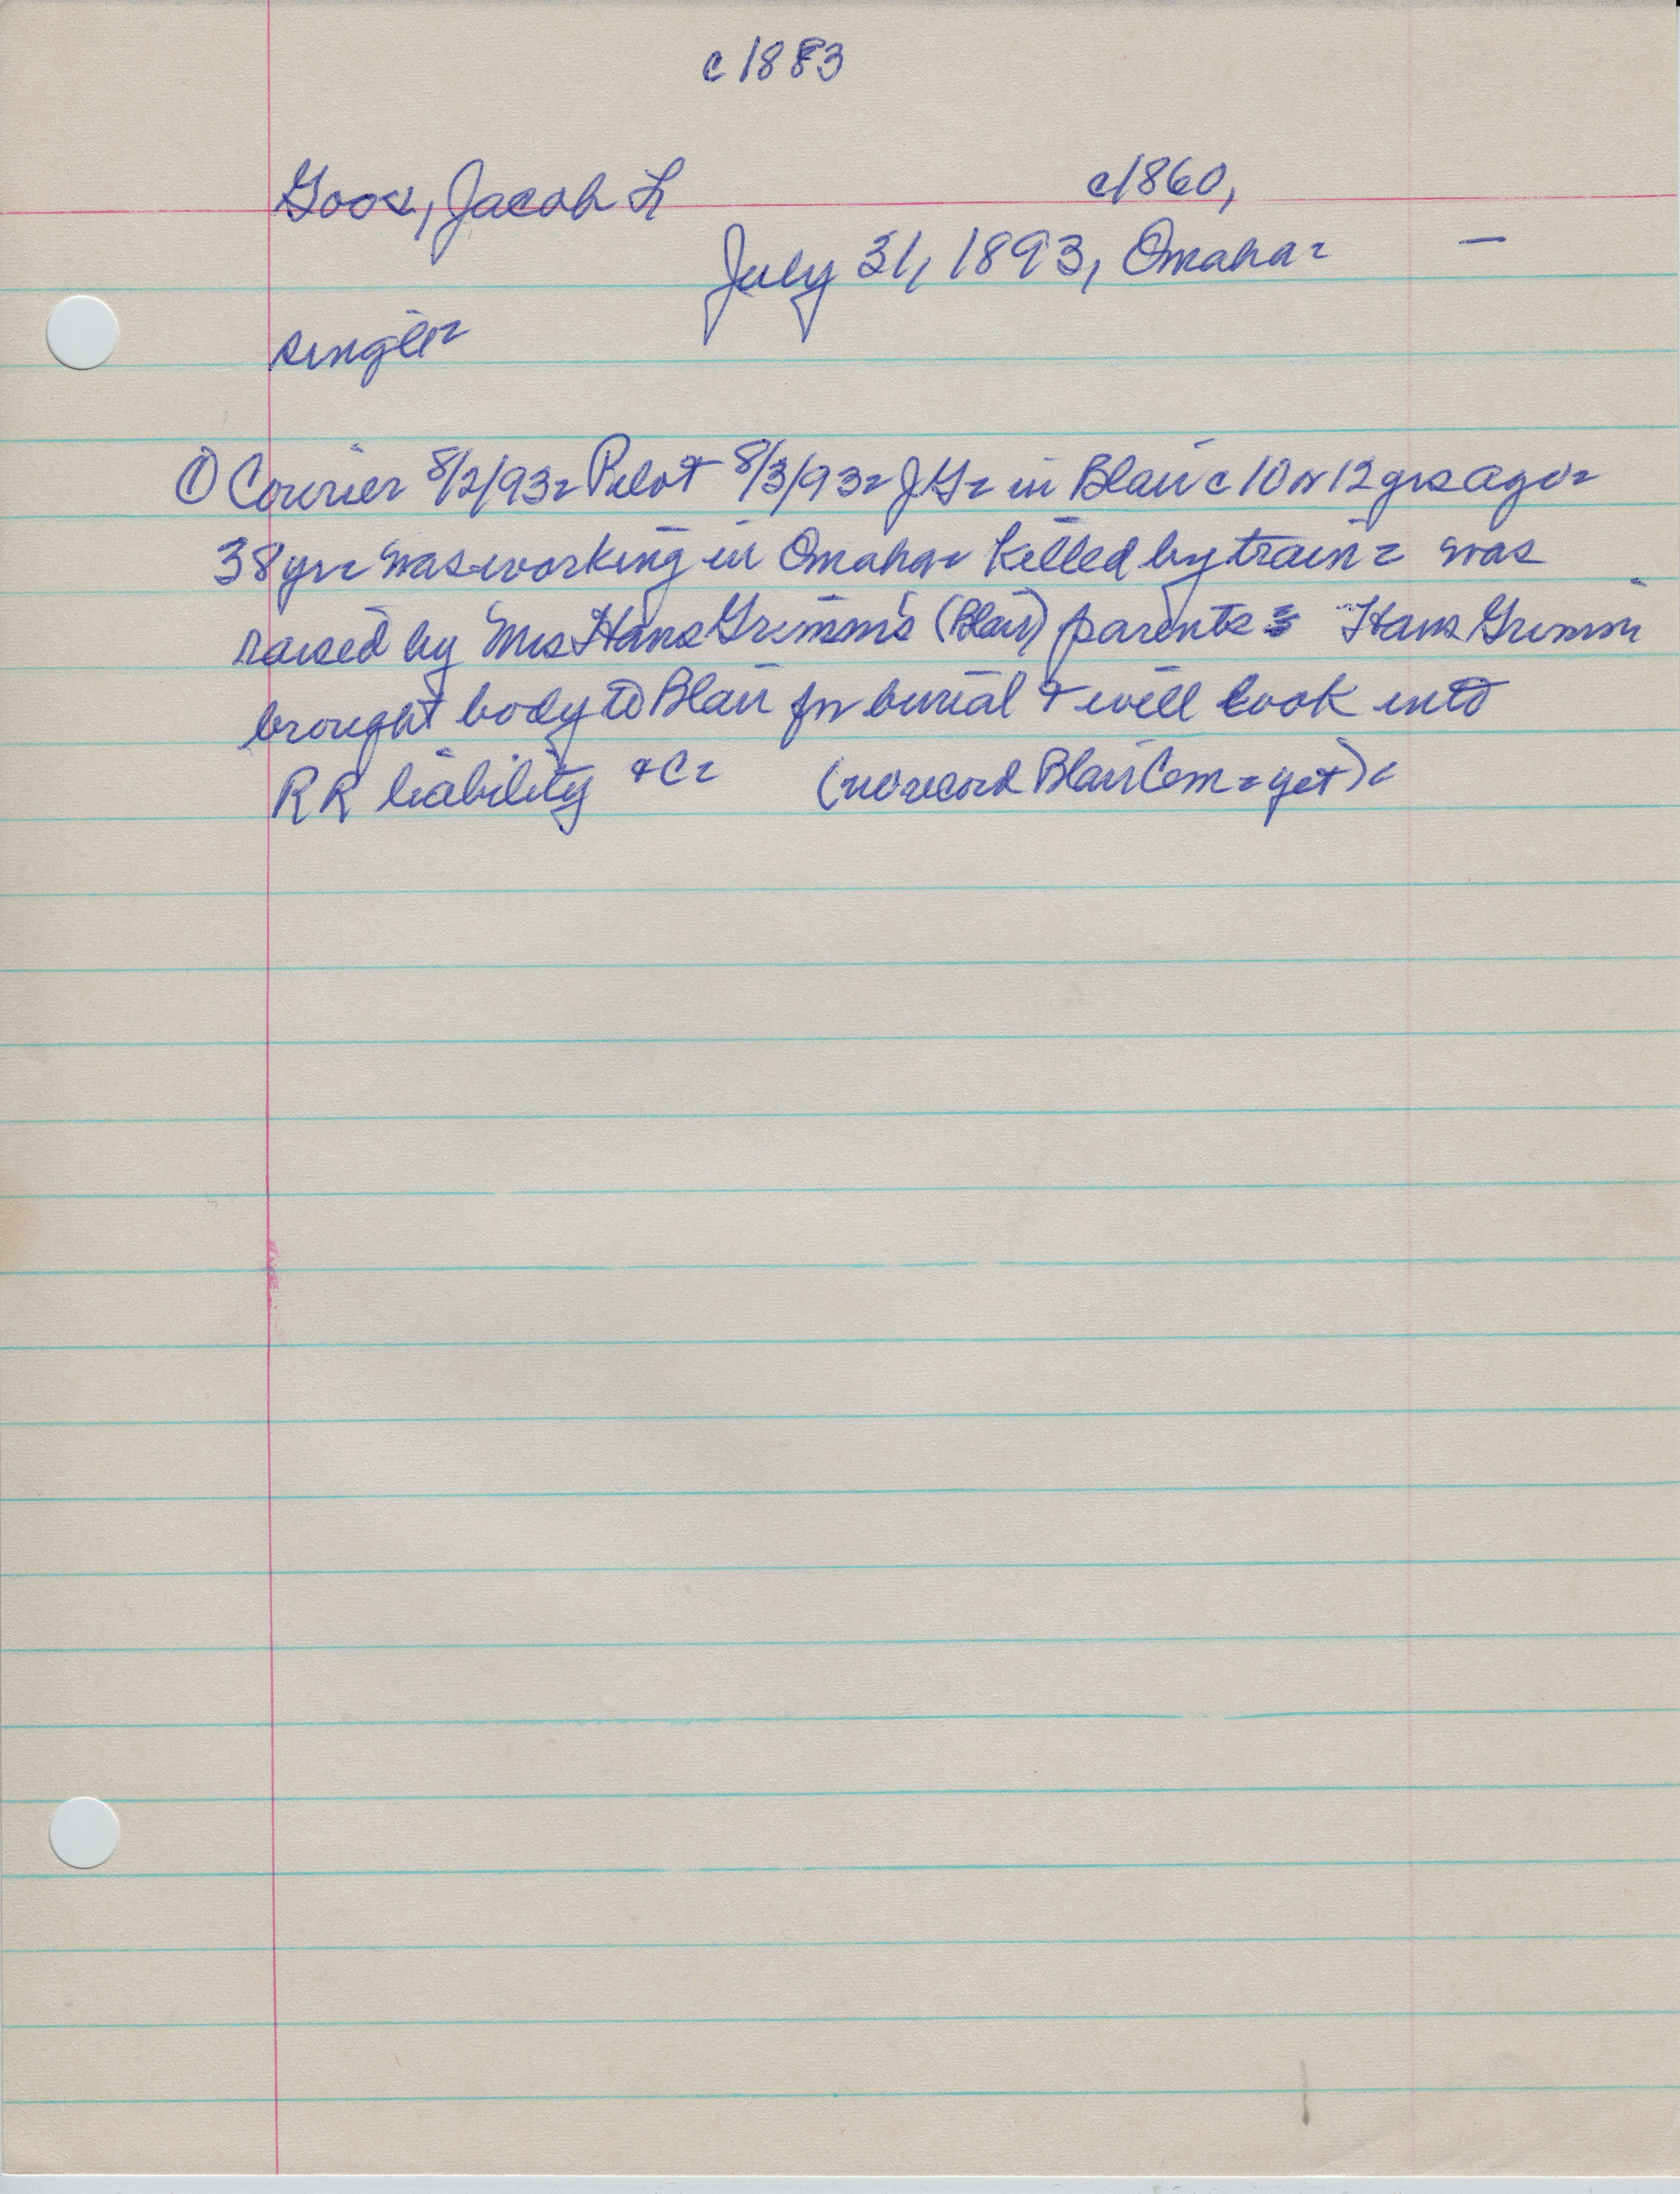 c 1883
Goos, Jacob L c1860,
July 31, 1893, Omaha =
single =
① Courier 8/2/93 = Pilot 8/3/93 = JG = in Blair c 10 or 12 yrs ago =
38 yr = was working in Omaha = killed by train = was
raised by Mrs Hans Grimm's (Blair) parents = Hans Grimm
brought body to Blair for burial & will look into
RR liability &c = (no record Blair Cem = yet) =